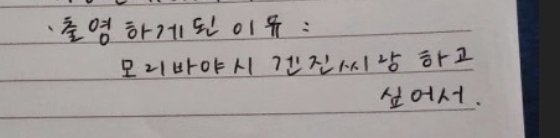 · 출영하게된이유 :
모리바야시 겐진씨랑 하고
싶어서.